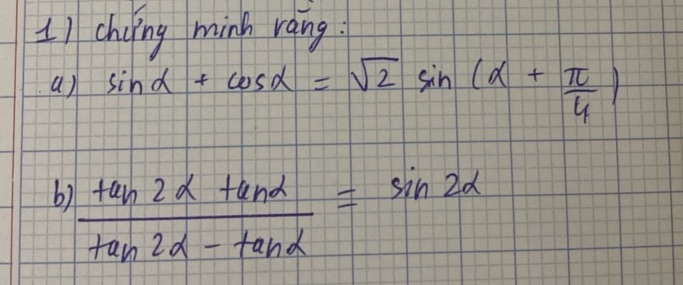 1) chứng minh rằng:
a) sinα + cosα = √2 sin (α + π/4)
b) (tan 2α tanα)/(tan 2α - tanα) = sin 2α